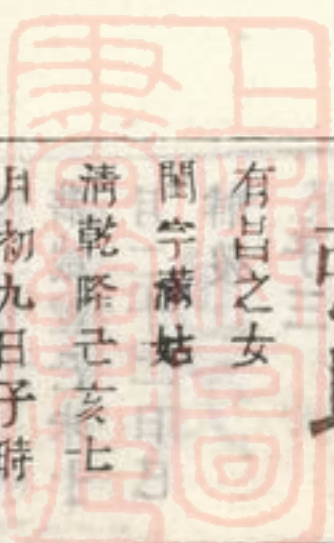 有昌之女
閨字滿姑
清乾隆己亥七
月初九日子時